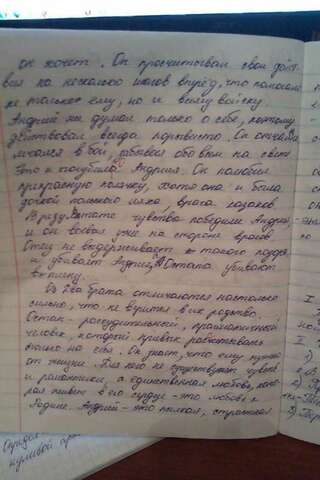 он хочет. Он просчитывал свои дейст-
вия на несколько шагов вперёд, что помогало
не только ему, но и всему войску.
Андрий же думал только о себе, поэтому
действовал всегда порывисто. Он отчаянно
мчался в бой, забывая обо всём на свете.
Это и погубило Андрия. Он полюбил
прекрасную полячку, хотя она и была
дочкой польского ляха, врага казаков.
В результате чувства победили Андрия,
и он воевал уже на стороне врагов.
Отец не выдерживает такого позора
и убивает Андрия, а Остапа убивают
в плену.
Два брата отличаются настолько
сильно, что не верится в их родство.
Остап - рассудительный, прямолинейный
человек, который привык рассчитывать
только на себя. Он знает, что ему нужно
от жизни. Для него не существует чувств
и романтики, а единственная любовь, кото-
рая живёт в его сердце - это любовь к
Родине. Андрий - это пылкая, страстная